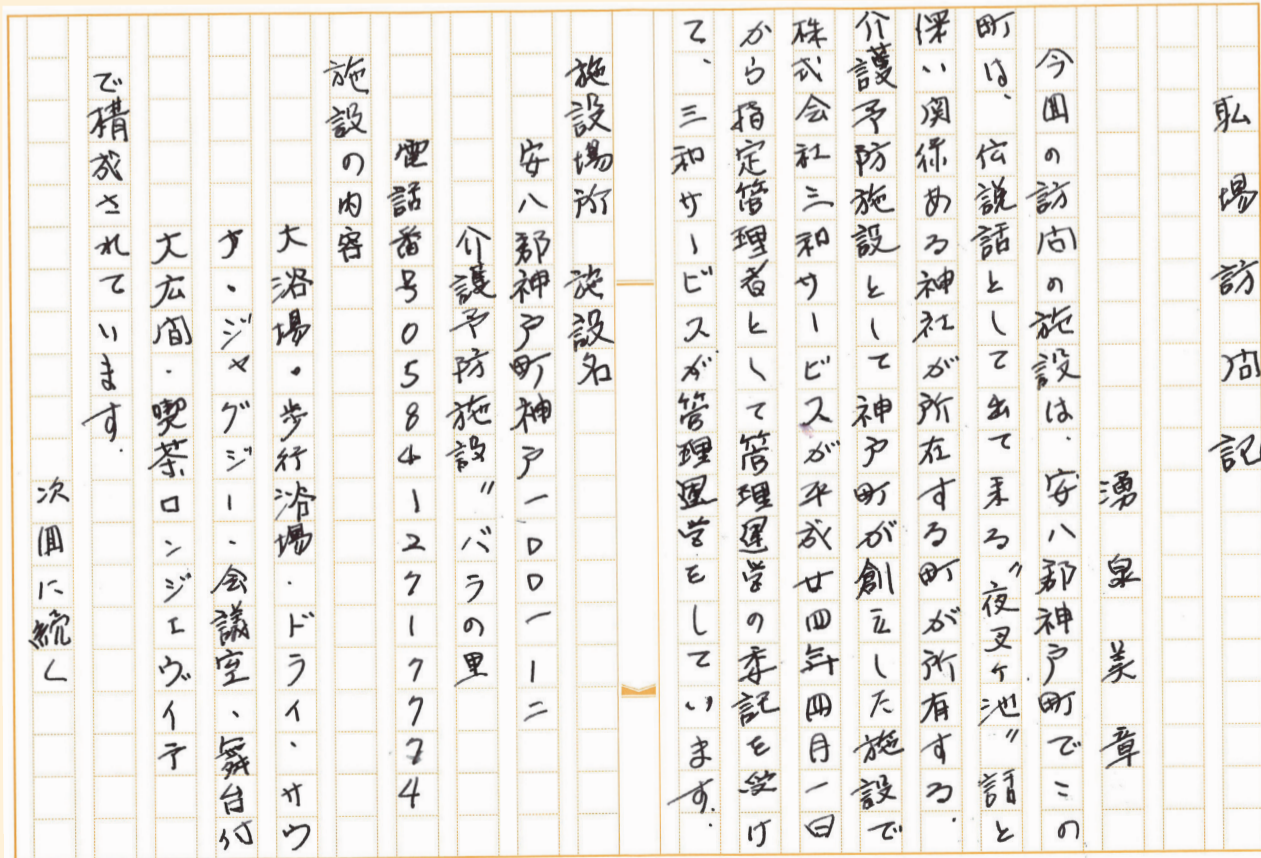 私場訪問記
湧泉美章
今回の訪問の施設は、安八郡神戸町でこの
町は、伝説話として出て来る〝夜叉ケ池〟話と
深い関係ある神社が所在する町が所有する、
介護予防施設として神戸町が創立した施設で
株式会社三和サービスが平成廿四年四月一日
から指定管理者として管理運営の委記を受け
て、三和サービスが管理運営をしています。
施設場所 施設名
安八郡神戸町神戸一〇〇一ー二
介護予防施設〝バラの里
電話番号0584ー27ー7774
施設の内容
大浴場・歩行浴場・ドライ・サウ
ナ・ジャグジー・会議室、舞台付
大広間・喫茶ロンジェヴィテ
で構成されています。
次回に続く